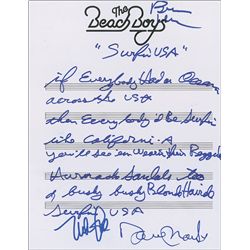 The
Beach Boys
"Surfin USA"
if Everybody Had an Ocean
across the USA
then Everybody'd Be Surfin
like Californi-A
you'll see em wearin their Baggies
Huarachi Sandals too
a bushy bushy Blond Hairdo
Surfin USA
David Marks